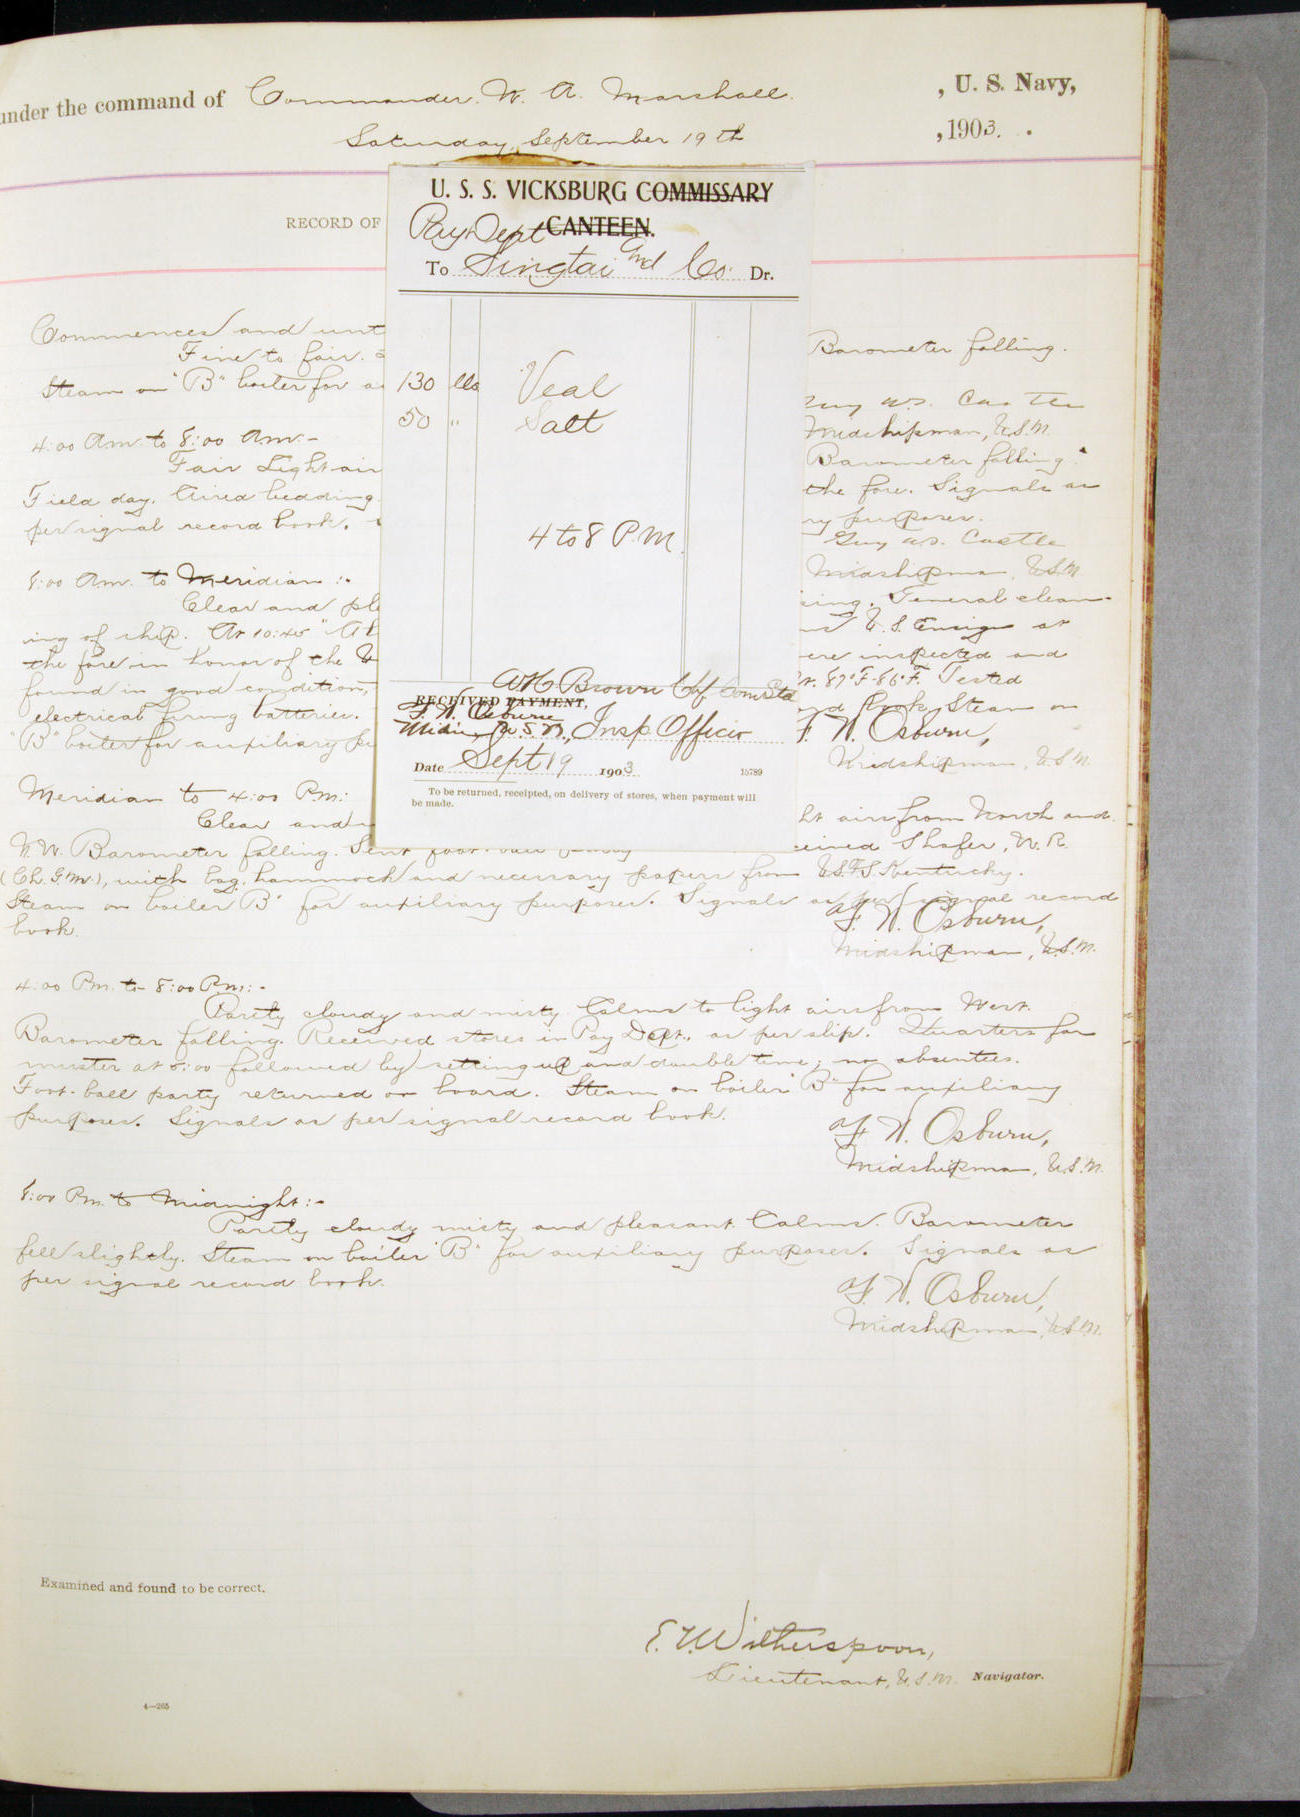 under the command of Commander. W. A. Marshall. , U. S. Navy,
Saturday, September 19th ,1903. .
RECORD OF
U. S. S. VICKSBURG COMMISSARY
Pay Dept CANTEEN.
To Singtai and Co. Dr.
130 lbs Veal
50 " Salt
4 to 8 P.M.
A H Brown Chf Com Std
RECEIVED PAYMENT,
F. W. Osburn
Midn, U.S.N., Insp Officer
Date Sept 19 1903 15789
To be returned, receipted, on delivery of stores, when payment will
be made.
Commences and unt
Fine to fair. Barometer falling.
Steam on "B" boiler for a
Guy W.S. Castle
Midshipman, U.S.N.
4:00 A.m. to 8:00 A.m.-
Fair Light air Barometer falling.
Field day. Aired bedding. the fore. Signals as
per signal record book. ry purposes.
Guy W.S. Castle
Midshipman, U.S.N.
8:00 A.m. to Meridian:-
Clear and ple sing. General clean-
ing of ship. At 10:45 U.S. Ensign at
the fore in honor of the U ere inspected and
found in good condition, 87°F-86°F. Tested
electrical firing batteries. Steam on
"B" boiler for auxiliary pu
F. W. Osburn,
Midshipman, U.S.N.
Meridian to 4:00 P.m.:
Clear and ht airs from North and
N.W. Barometer falling. Sent foot-ball ceived Shafer, W. R.
(Ch. G.M.), with bag, hammock and necessary papers from U.S.F.S. Kentucky.
Steam on boiler "B" for auxiliary purposes. Signals as per signal record
book.
F. W. Osburn,
Midshipman, U.S.N.
4:00 P.m. to 8:00 P.m.:-
Partly cloudy and misty. Calms to light airs from West.
Barometer falling. Received stores in Pay Dept., as per slip. Quarters for
muster at 5:00 followed by setting up and double time; no absentees.
Foot-ball party returned on board. Steam on boiler "B" for auxiliary
purposes. Signals as per signal record book.
F. W. Osburn,
Midshipman, U.S.N.
8:00 P.m. to Midnight:-
Partly cloudy misty and pleasant. Calms. Barometer
fell slightly. Steam on boiler "B" for auxiliary purposes. Signals as
per signal record book.
F. W. Osburn,
Midshipman, U.S.N.
Examined and found to be correct.
E. T. Witherspoon,
Lieutenant, U.S.N. Navigator.
4—265